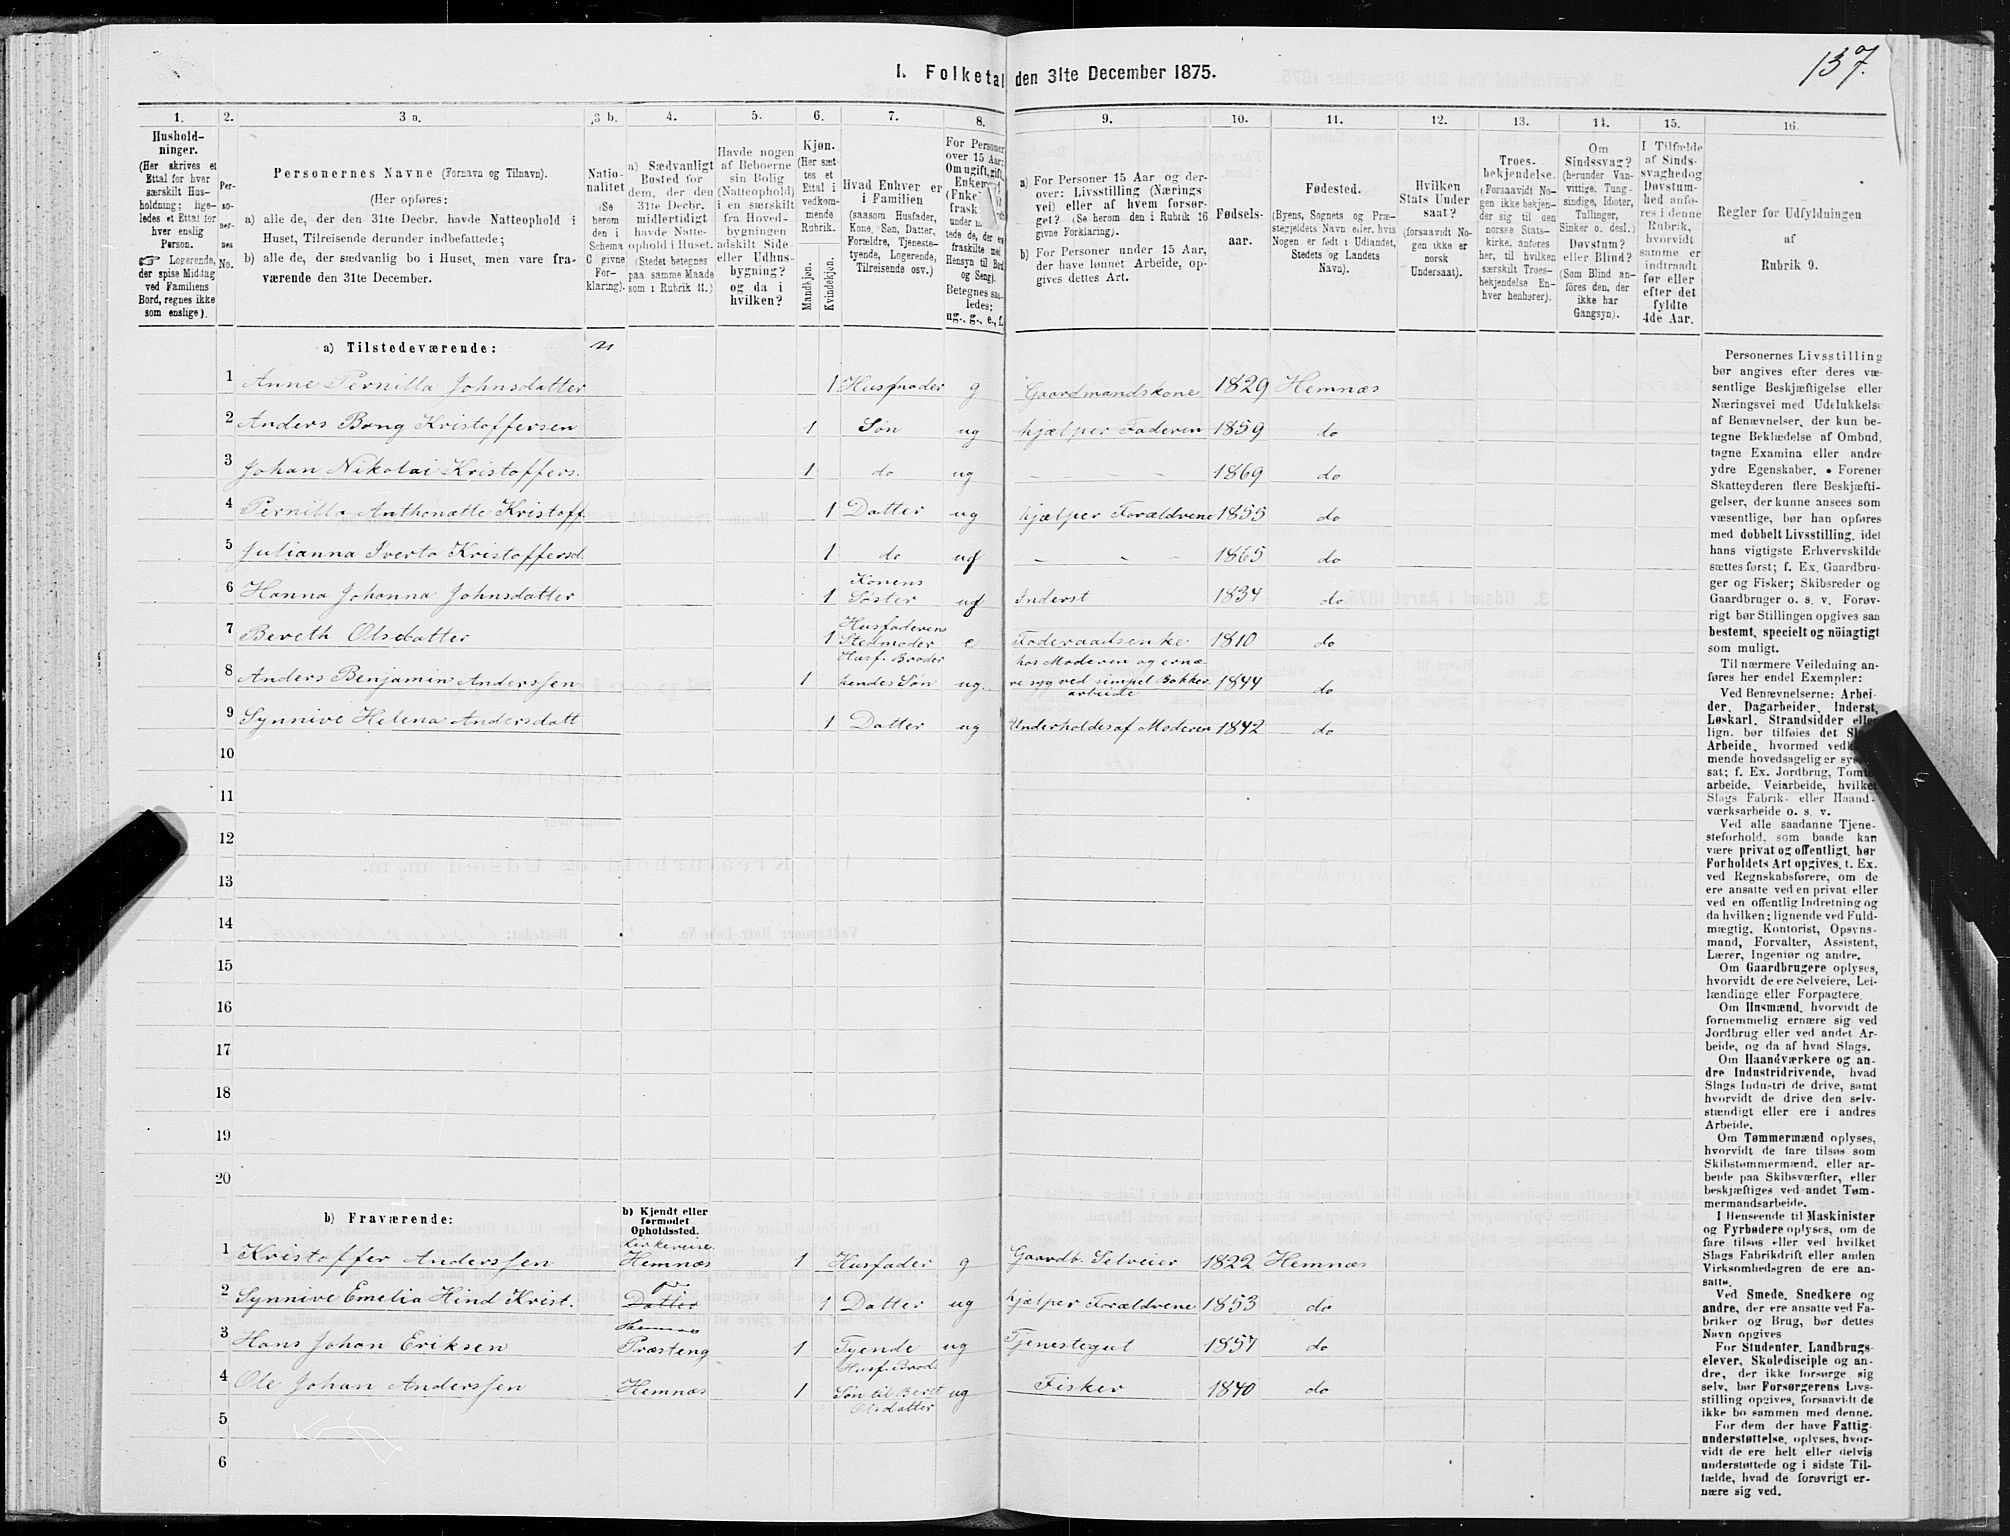 137.
I. Folketal den 31te December 1875.
1. 2. 3 a. 3 b. 4. 5. 6. 7. 8. 9. 10. 11. 12. 13. 14. 15. 16.
Hushold-
ninger.
(Her skrives et
Ettal for hver
særskilt Hus-
holdning; lige-
ledes et Ettal for
hver enslig
Person.
☞ Logerende,
der spise Middag
ved Familiens
Bord, regnes ikke
som enslige).
Per-
so-
ner-
nes
No.
Personernes Navne (Fornavn og Tilnavn).
(Her opføres:
a) alle de, der den 31te Decbr. havde Natteophold i
Huset, Tilreisende derunder indbefattede;
b) alle de, der sædvanlig bo i Huset, men vare fra-
værende den 31te December.
Natio-
nalitet
(Se
herom
den i
Schema
C givne
For-
klaring).
a) Sædvanligt
Bosted for
dem, der den
31te Decbr.
midlertidigt
havde Natte-
ophold i Huset.
(Stedet betegnes
paa samme Maade
som i Rubrik 11.)
Havde nogen
af Beboerne
sin Bolig
(Natteophold)
i en særskilt
fra Hoved-
bygningen
adskilt Side-
eller Udhus-
bygning?
og da i
hvilken?
Kjøn.
(Her sæt-
tes et
Ettal i
vedkom-
mende
Rubrik.
Mandkjøn.
Kvindekjøn.
Hvad Enhver er
i Familien
(saasom Husfader,
Kone, Søn, Datter,
Forældre, Tjeneste-
tyende, Logerende,
Tilreisende osv.)
For Personer
over 15 Aar:
Om ugift, gift,
Betegnes saa-
ledes:
ug., g., e., f.
a) For Personer 15 Aar og der-
over: Livsstilling (Nærings
vei) eller af hvem forsør-
get? (Se herom den i Rubrik 16
givne Forklaring).
b) For Personer under 15 Aar,
der have lønnet Arbeide, op-
gives dettes Art.
Fødsels-
aar.
Fødested.
(Byens, Sognets og Præ-
stegjeldets Navn eller, hvis
Nogen er født i Udlandet,
Stedets og Landets
Navn).
Hvilken
Stats Under
saat?
(forsaavidt No-
gen ikke er
norsk
Undersaat).
Troes-
bekjendelse.
(Forsaavidt No-
gen ikke bekjen-
der sig til den
norske Stats-
kirke, anføres
her, til hvilken
særskilt Troes-
bekjendelse En-
hver henhører).
Om
Sindssvag?
(herunder Van-
vittige, Tung-
sindige, Idioter,
Tullinger,
Sinker o. desl.)
Døvstum?
eller Blind?
(Som Blind an-
føres den, der
ikke har
Gangsyn).
I Tilfælde
af Sinds-
svaghed og
Døvstum-
hed anfø-
res i denne
Rubrik,
hvorvidt
samme er
indtraadt
før eller
efter det
fyldte
4de Aar.
Regler for Udfyldningen
af
Rubrik 9.
a) Tilstedeværende: n
1 Anne Pernilla Johnsdatter 1 Husmoder g Gaardmandskone 1829 Hemnæs
2 Anders Bang Kristoffersen 1 Søn ug hjælper Faderen 1859 do
3 Johan Nikolai Kristoffers. 1 do ug - - 1869 do
4 Pernilla Anthonætte Kristoff. 1 Datter ug hjælper Forældrene 1855 do
5 Julianna Iverta Kristoffersd. 1 do ug - - - 1865 do
6 Hanna Johanna Johnsdatter 1 Konens Søster ug Inderst 1834 do
7 Bereth Olsdatter 1 Husfaderens Stedmoder e Foderaadsenke 1810 do
8 Anders Benjamin Anderssen 1 Husf. Broder hendes Søn ug. hos Moderen og ernæ-
re syg ved simpel Bøkker
arbeide 1844 do
9 Synnive Helena Andersdatt 1 Datter ug Underholdes af Moderen 1842 do
10
11
12
13
14
15
16
17
18
19
20
b) Fraværende:
b) Kjendt eller
formodet
Opholdssted.
1 Kristoffer Anderssen Kirkereise Hemnæs 1 Husfader g Gaardb. Selveier 1822 Hemnæs
2 Synnive Emelia Hind Krist. do Datter 1 Datter ug hjælper Forældrene 1853 do
3 Hans Johan Eriksen Hemnæs Præsteng 1 Tyende ug Tjenestegut 1857 do
4 Ole Johan Anderssen Hemnæs 1 Husf. Brod. Søn til Beret Olsdatter ug Fisker 1840 do
5
6
Personernes Livsstilling
bør angives efter deres væ-
sentlige Beskjæftigelse eller
Næringsvei med Udelukkelse
af Benævnelser, der kun be-
tegne Beklædelse af Ombud,
tagne Examina eller andre
ydre Egenskaber. Forener
Skatteyderen flere Beskjæfti-
gelser, der kunne ansees som
væsentlige, bør han opføres
med dobbelt Livsstilling, idet
hans vigtigste Erhvervskilde
sættes først; f. Ex. Gaardbru-
ger og Fisker; Skibsreder og
Gaardbruger o. s. v. Forøv-
rigt bør Stillingen opgives saa
bestemt, specielt og nöiagtigt
som muligt.
Til nærmere Veiledning an-
føres her endel Exempler:
Ved Benævnelserne: Arbei-
der, Dagarbeider, Inderst,
Løskarl, Strandsidder eller
lign. bør tilføies det Slags
Arbeide, hvormed vedkom-
mende hovedsagelig er syssel-
sat; f. Ex. Jordbrug, Tomte-
arbeide, Veiarbeide, hvilket
Slags Fabrik- eller Haand-
værksarbeide o. s. v.
Ved alle saadanne Tjene-
steforhold, som baade kan
være privat og offentligt, bør
Forholdets Art opgives, t. Ex.
ved Regnskabsførere, om de
ere ansatte ved en privat eller
ved en offentlig Indretning og
da hvilken; lignende ved Fuld-
mægtig, Kontorist, Opsyns-
mand, Forvalter, Assistent,
Lærer, Ingeniør og andre.
Om Gaardbrugere oplyses,
hvorvidt de ere Selveiere, Lei-
lændinge eller Forpagtere.
Om Husmænd, hvorvidt de
fornemmelig ernære sig ved
Jordbrug eller ved andet Ar-
beide, og da af hvad Slags.
Om Haandværkere og an-
dre Industridrivende, hvad
Slags Industri de drive, samt
hvorvidt de drive den selv-
stændigt eller ere i andres
Arbeide.
Om Tømmermænd oplyses,
hvorvidt de fare tilsøs som
Skibstømmermænd, eller ar-
beide paa Skibsværfter, eller
beskjæftiges ved andet Tøm-
mermandsarbeide.
I Henseende til Maskinister
og Fyrbødere oplyses, om de
fare tilsøs eller ved hvilket
Slags Fabrikdrift eller anden
Virksomhedsgren de ere an-
satte.
Ved Smede, Snedkere og
andre, der ere ansatte ved Fa-
briker og Brug, bør dettes
Navn opgives
For Studenter, Landbrugs-
elever, Skoledisciple og an-
dre, der ikke forsørge sig
selv, bør Forsørgerens Livs-
stilling opgives, forsaavidt de
ikke bo sammen med denne.
For dem, der have Fattig-
understøttelse, oplyses, hvor-
vidt de ere helt eller delvis
understøttede og i sidste Til-
fælde, hvad de forøvrigt er-
nære sig ved.